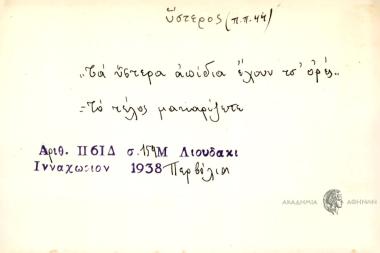 ὕστερος (π.π. 44)
„Τὰ ὕστερα ἀπίδια ἔχουν τσ' ὀρές„
=Τὸ τέλος μακαρίζετε
Αριθ. ΙΙ6ΙΔ σ. 154 Μ Λιουδακι
Ινναχωριον 1938 Περβόλια
ΑΚΑΔΗΜΙΑ ΑΘΗΝΩΝ